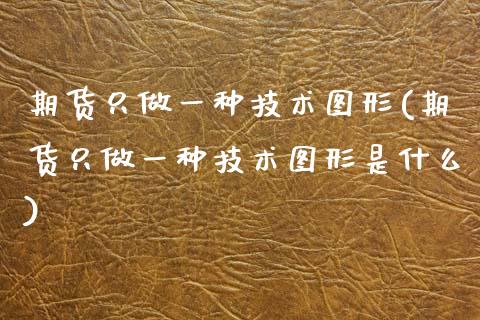 期货只做一种技术图形(期
货只做一种技术图形是什么
)